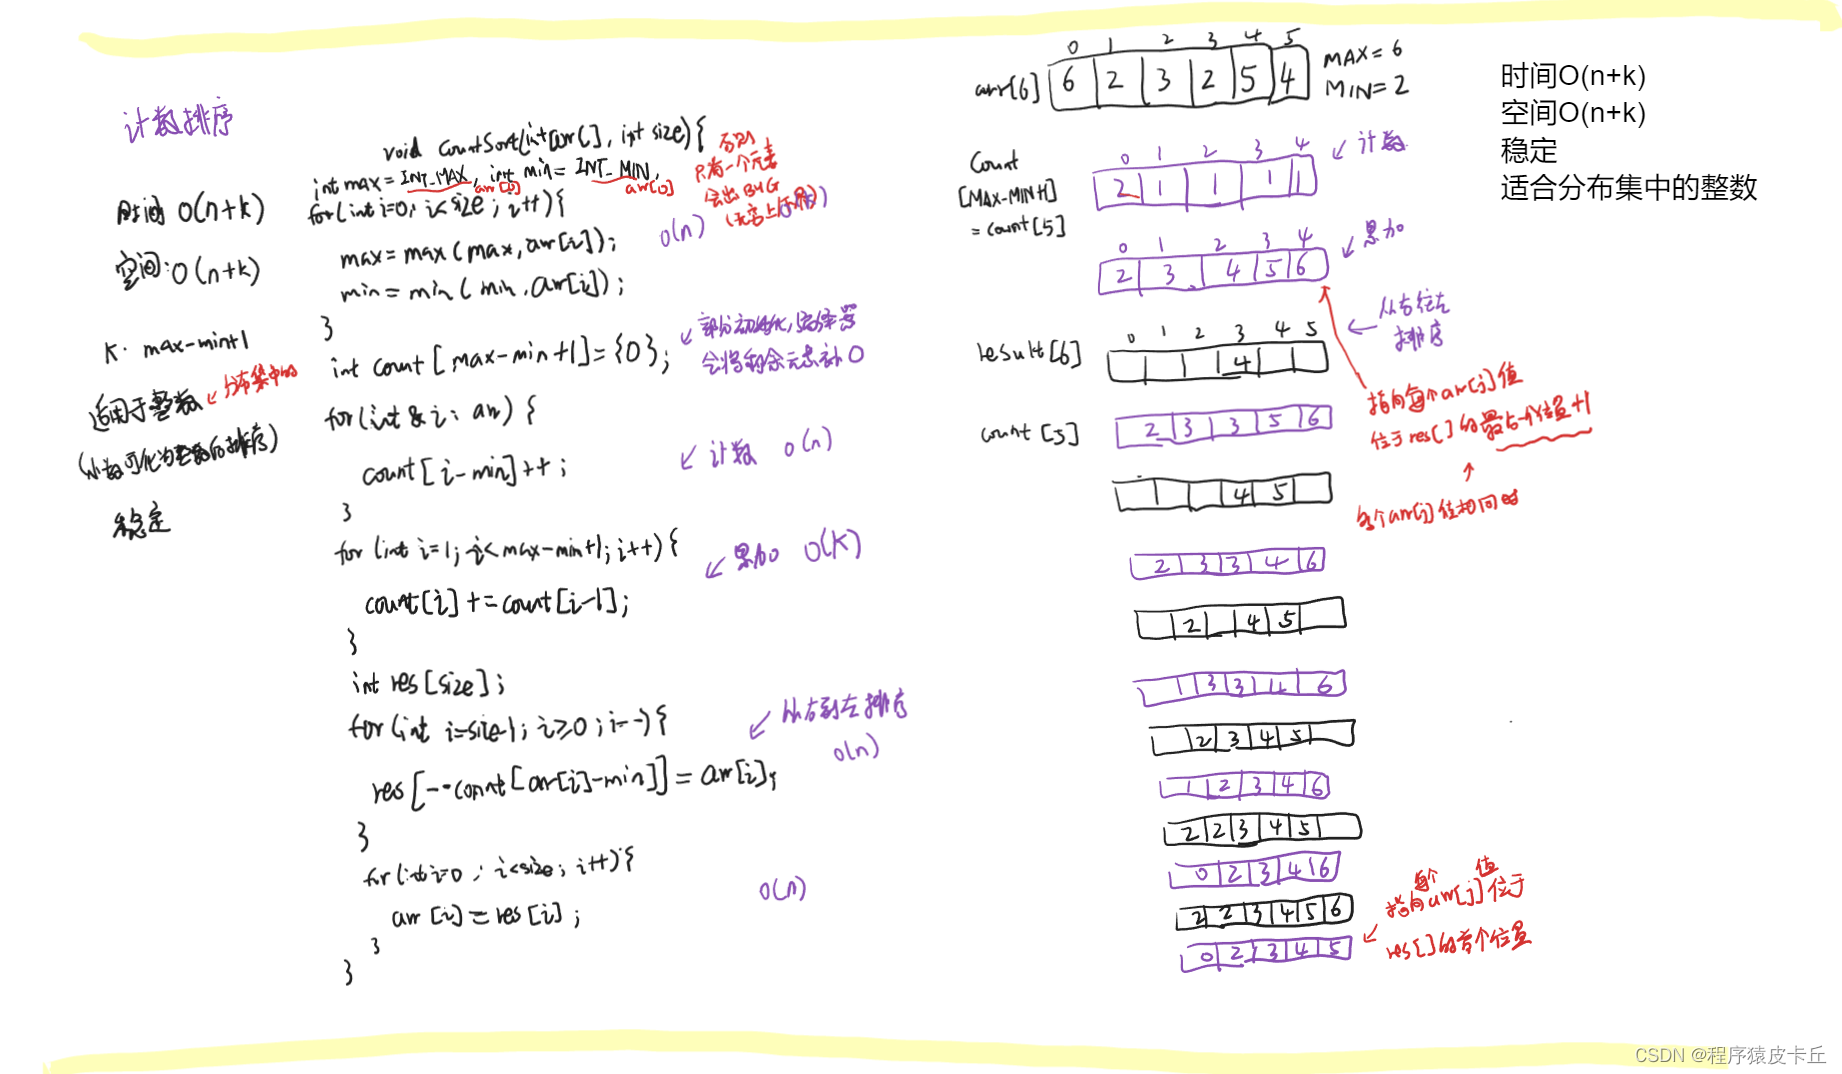 计数排序
时间 O(n+k)
空间:O(n+k)
K: max-min+1
适用于整数
分布集中的
(小数可化为整数后排序)
稳定
void CountSort(int arr[], int size){
int max = INT_MAX, int min = INT_MIN,
arr[0] arr[0]
否则
只有一个元素
会出BUG
for(int i=0; i<size; i++){
max = max(max, arr[i]);
O(n)
min = min(min, arr[i]);
}
int count[max-min+1]={0};
部分初始化,编译器
会将剩余元素补0
for(int & i : arr){
count[i-min]++;
计数 O(n)
}
for(int i=1; i<max-min+1; i++){
累加 O(K)
count[i]+=count[i-1];
}
int res[size];
for(int i=size-1; i≥0; i--){
从右到左排序
O(n)
res[--count[arr[i]-min]]=arr[i];
}
for(int i=0; i<size; i++){
O(n)
arr[i]=res[i];
}
}
0 1 2 3 4 5
arr[6] 6 2 3 2 5 4
MAX=6
MIN=2
Count
[MAX-MIN+1]
=count[5]
0 1 2 3 4
2 1 1 1 1
计数
0 1 2 3 4
2 3 4 5 6
累加
从右往左
排序
0 1 2 3 4 5
result[6] 4
指向每个arr[j]值
位于res[]的最后一个位置+1
每个arr[j]值相同时
count[5] 2 3 3 5 6
4 5
2 3 3 4 6
2 4 5
1 3 3 4 6
2 3 4 5
1 2 3 4 6
2 2 3 4 5
0 2 3 4 6
2 2 3 4 5 6
0 2 3 4 5
指向每个arr[j]值位于
res[]的首个位置
时间O(n+k)
空间O(n+k)
稳定
适合分布集中的整数
CSDN @程序猿皮卡丘